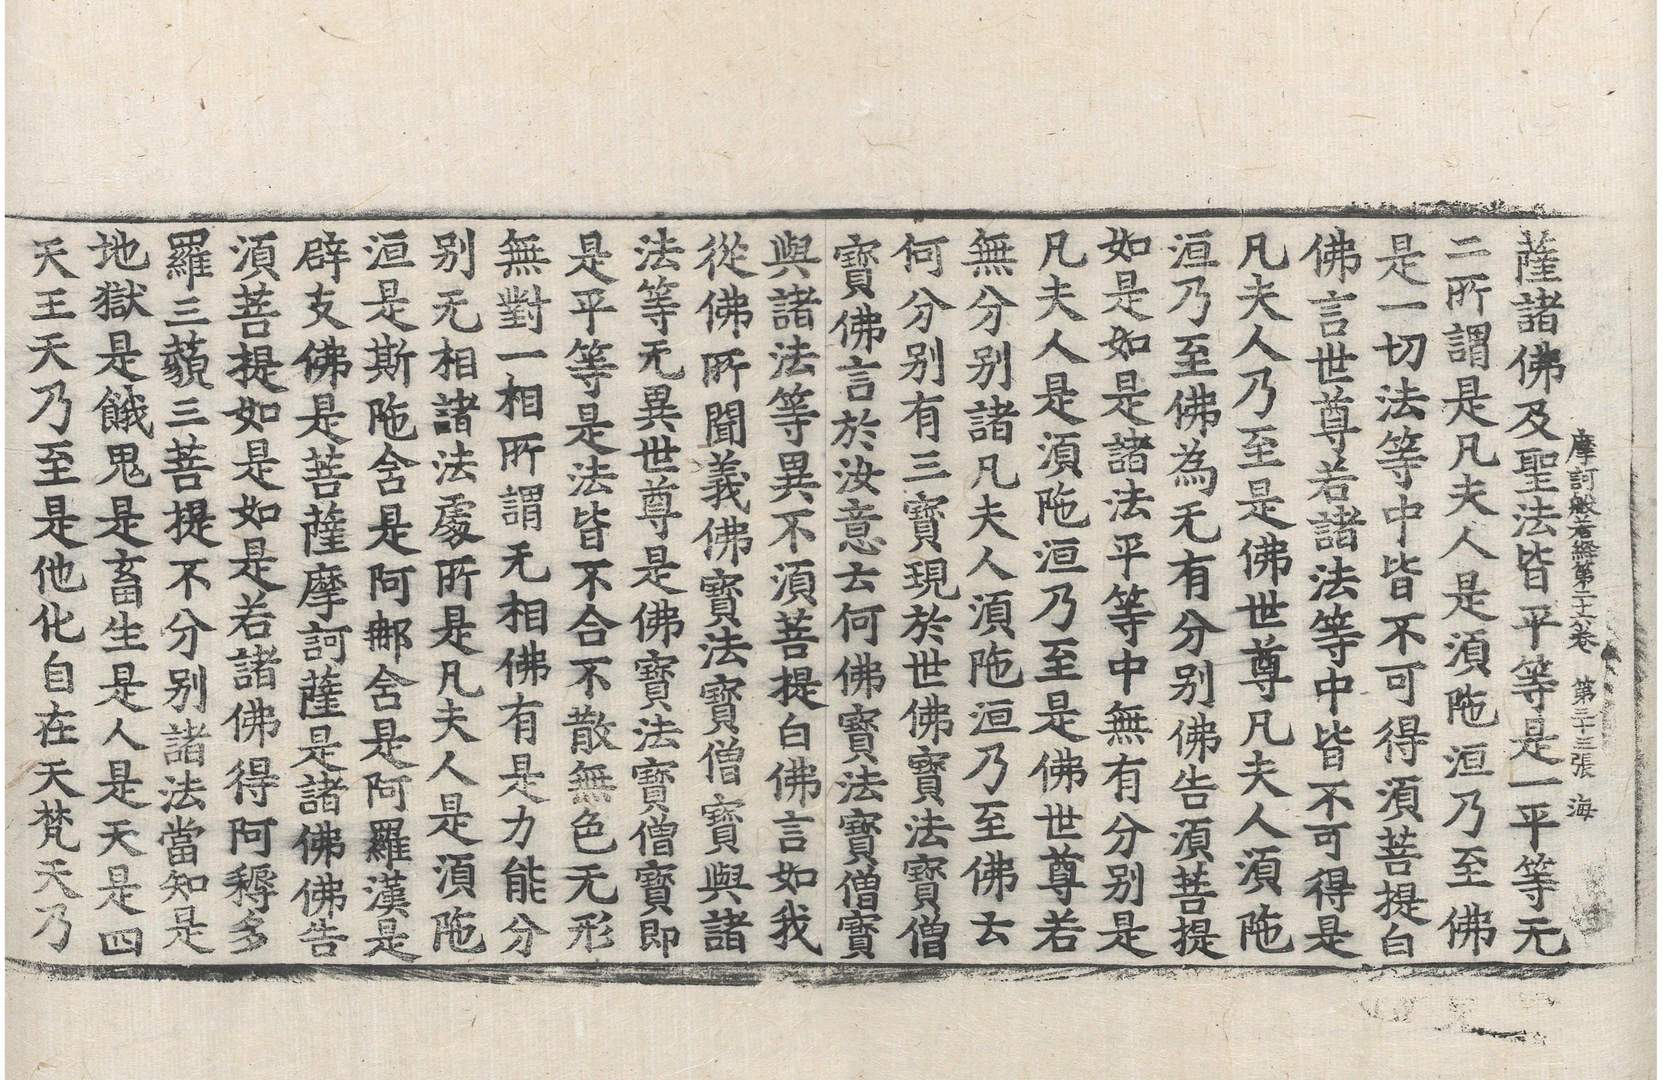 摩訶般若經第二十六卷 第三十三張 海
薩諸佛及聖法皆平等是一平等无
二所謂是凡夫人是須陁洹乃至佛
是一切法等中皆不可得須菩提白
佛言世尊若諸法等中皆不可得是
凡夫人乃至是佛世尊凡夫人須陁
洹乃至佛為无有分别佛告須菩提
如是如是諸法平等中無有分别是
凡夫人是須陁洹乃至是佛世尊若
無分别諸凡夫人須陁洹乃至佛云
何分别有三寶現於世佛寶法寶僧
寶佛言於汝意云何佛寶法寶僧寶
與諸法等異不須菩提白佛言如我
從佛所聞義佛寶法寶僧寶與諸
法等无異世尊是佛寶法寶僧寶即
是平等是法皆不合不散無色无形
無對一相所謂无相佛有是力能分
别无相諸法處所是凡夫人是須陁
洹是斯陁含是阿那含是阿羅漢是
辟支佛是菩薩摩訶薩是諸佛佛告
須菩提如是如是若諸佛得阿耨多
羅三藐三菩提不分别諸法當知是
地獄是餓鬼是畜生是人是天是四
天王天乃至是他化自在天梵天乃